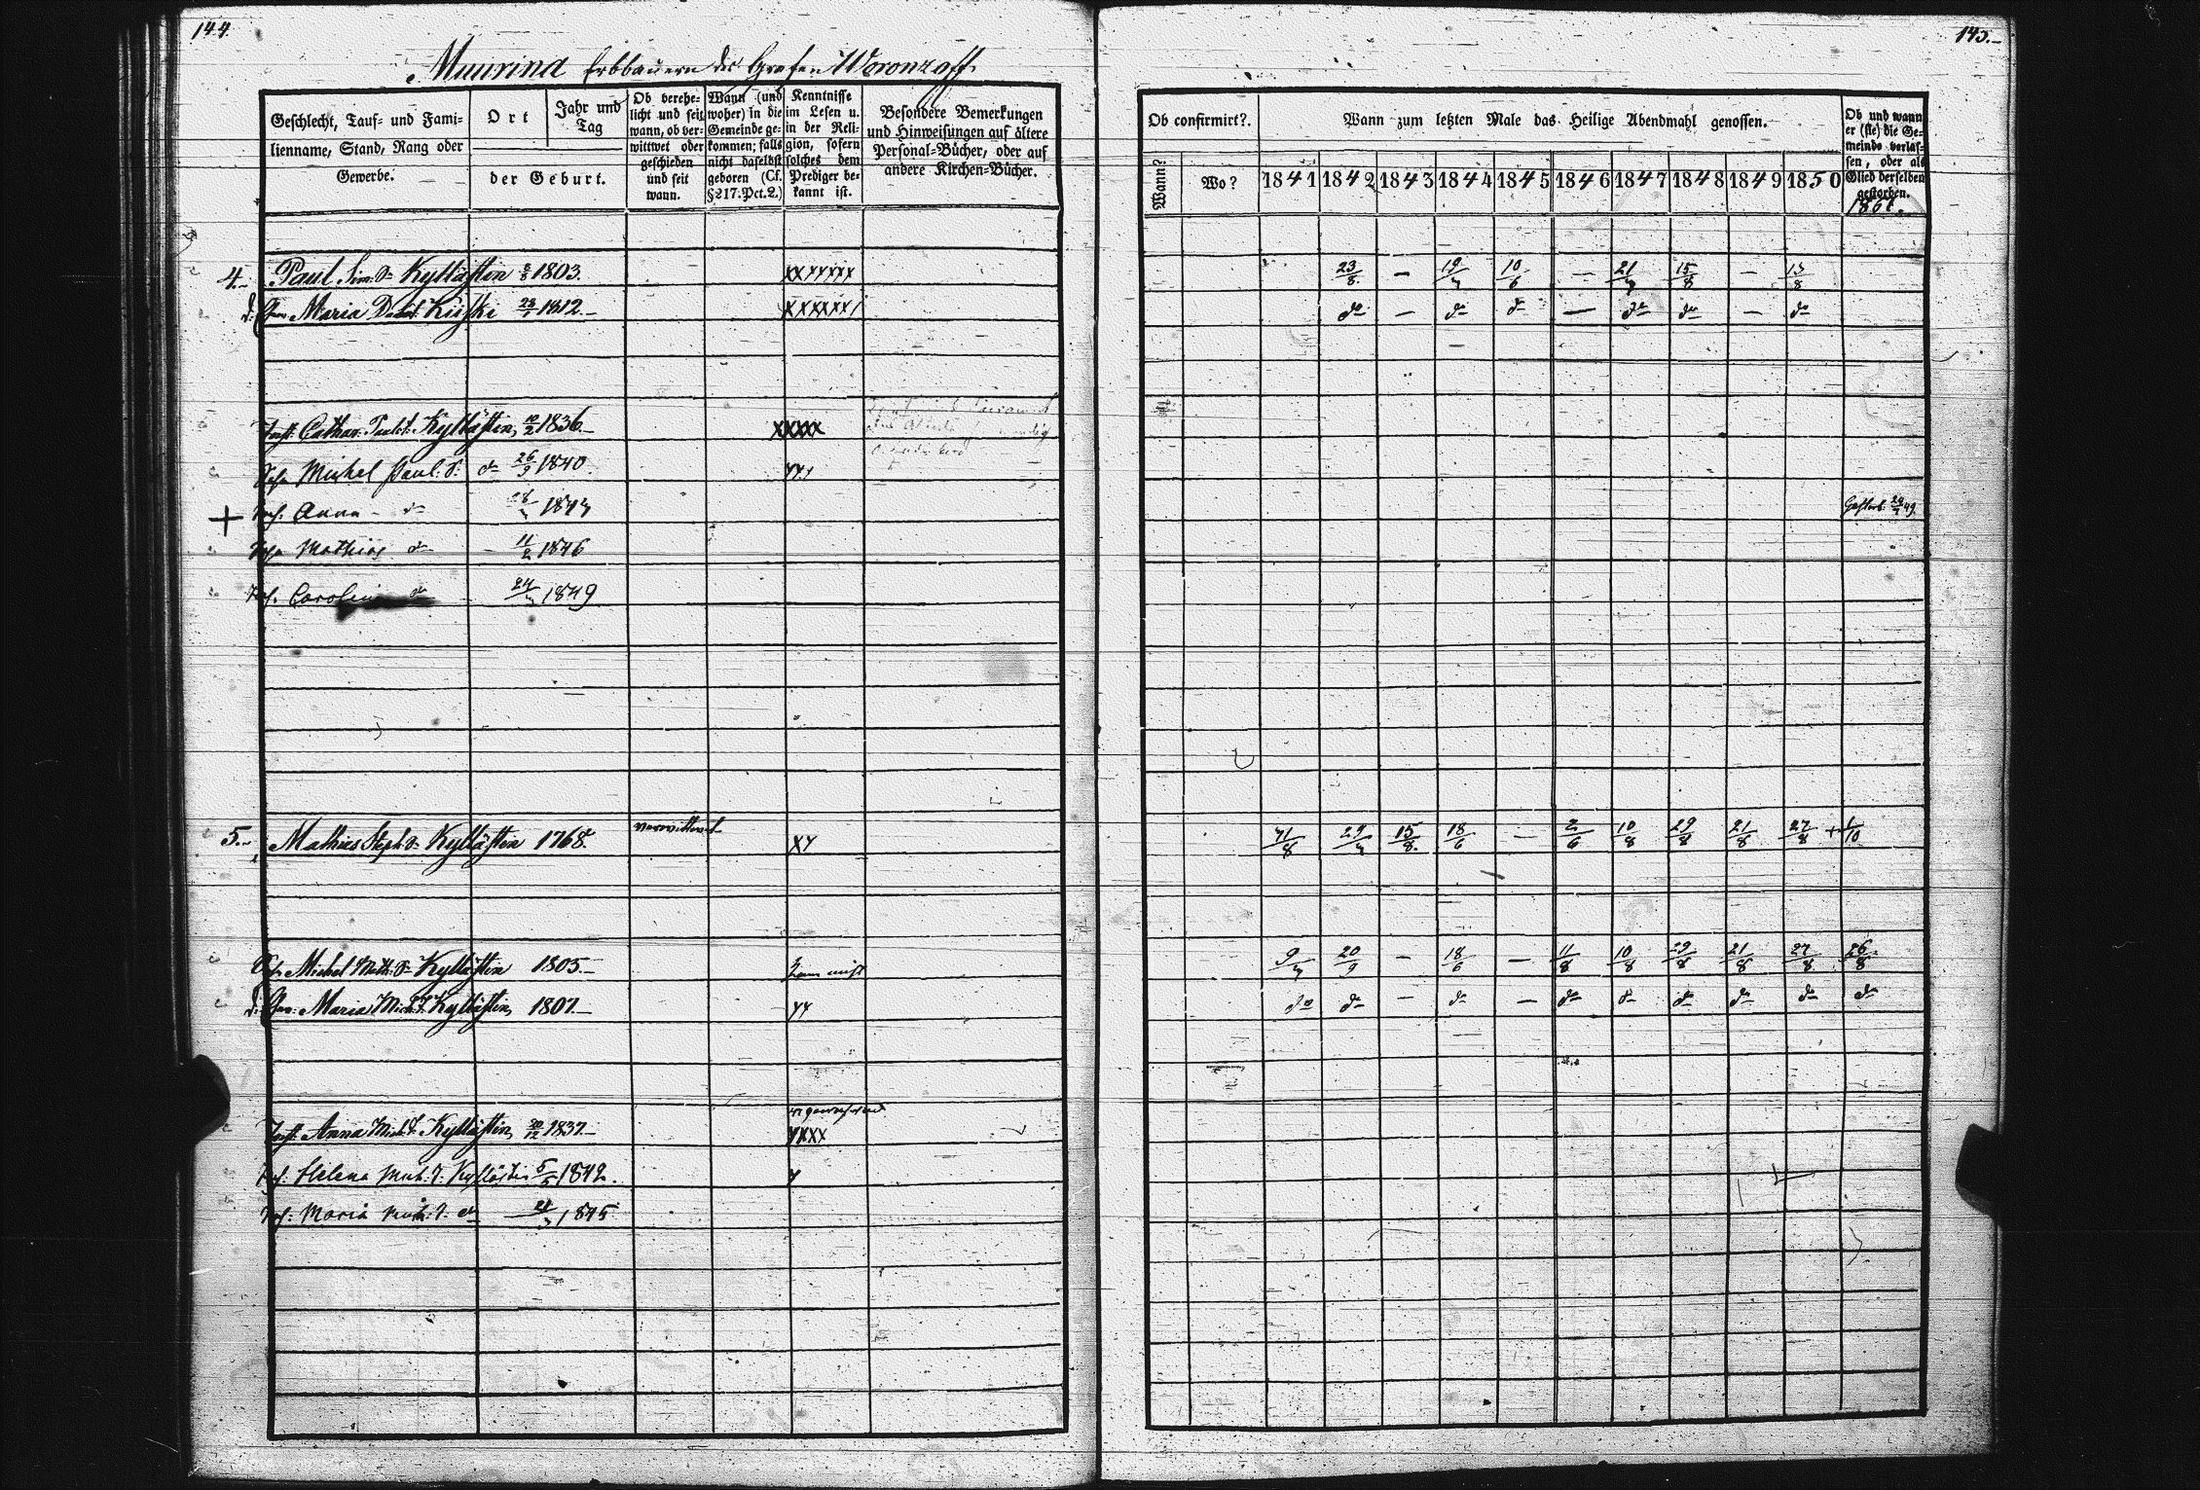 144.
Muurina Erbbauern des Grafen Woronzoff.
Geschlecht, Tauf- und Familienname, Stand, Rang oder Gewerbe.
Ort
Jahr und Tag
der Geburt.
Ob verehelicht und seit wann, ob verwittwet oder geschieden und seit wann.
Wann (und woher) in die Gemeinde gekommen; falls nicht daselbst geboren (Cf. §217. Pct. 2.)
Kenntnisse im Lesen u. in der Religion, sofern solches dem Prediger bekannt ist.
Besondere Bemerkungen und Hinweisungen auf ältere Personal-Bücher, oder auf andere Kirchen-Bücher.
4. Paul Sim. S. Kyllästin 1803.
Maria Kiiski 23/ 1812.
Cathar. Paul. t. Kyllästin 10/2 1836.
Michel Paul. S. do 26/9 1840.
+ Anna do
Mathias do 11/2 1846
Carolina do 24/ 1849
5. Mathias Steph. S. Kyllästin 1768. verwittwet XY
Michel Math. S. Kyllästin 1805.
Maria Mich. t. Kyllästin, 1807. YY
Anna Mich. t. Kyllästin, 20/12 1837. YXXX
Helena Mich. t. Kyllästin 5/5 1842. Y
Maria Mich. t. do 1845
145.
Ob confirmirt?.
Wann?
Wo?
Wann zum letzten Male das Heilige Abendmahl genossen.
1841 1842 1843 1844 1845 1846 1847 1848 1849 1850
Ob und wann er (sie) die Gemeinde verlassen, oder als Glied derselben gestorben.
23/8 — 19/7 10/6 — 21/7 15/8 — 13/8
do — do do — do do — do
Gestorb.
29/7 15/8 18/6 — 2/6 10/8 29/8 21/8 27/8 + 1/10
9/7 20/9 — 18/6 — 11/8 10/8 29/8 21/8 27/8 26/8
do do — do — do do do do do do